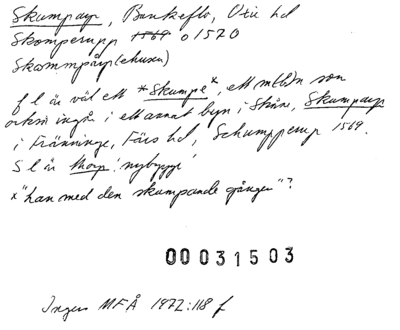 Skumparp, Bunkeflo, Oxie hd
Skomperupp 1569 o 1570
Skommpårp (ehuseu)
f l är väl ett *Skumpe x, ett mlt(b)n som
också ingår i ett annat byn i Skåne, Skumparp
i Fränninge, Färs hd, Schumpperup 1569.
S l är thorp 'nybygge'
x "han med den skumpande gången"?
00031503
Ingers MFÅ 1972:118 f